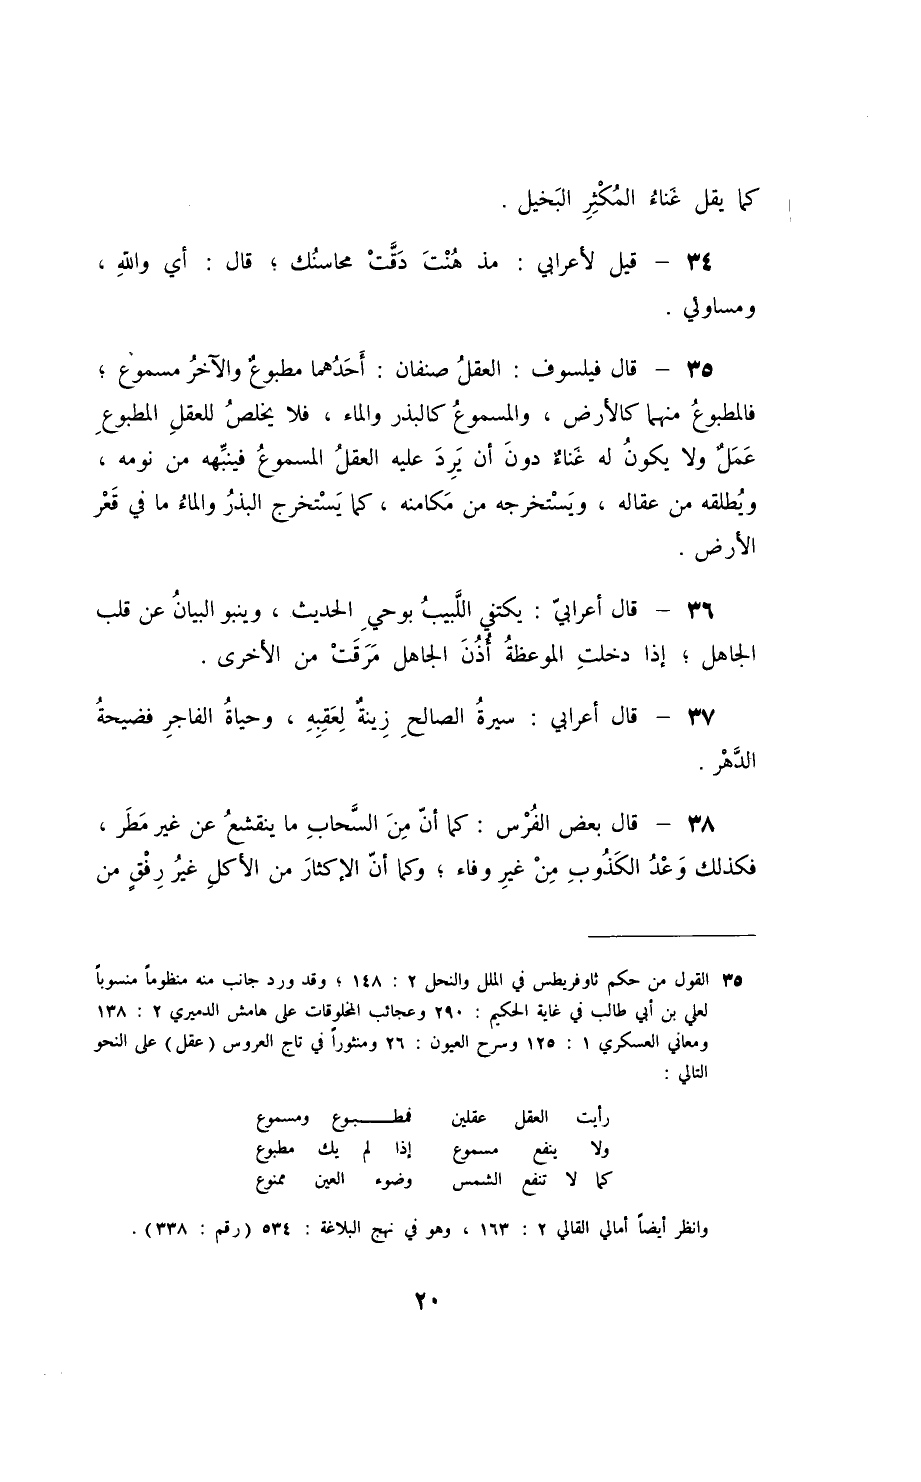 كما يقل غَناءُ المُكْثِرِ البَخيل .
٣٤ – قيل لأعرابي : مذ هُنْتَ دَقَّتْ محاسنُك ؛ قال : أي واللهِ ،
ومساوئي .
٣٥ – قال فيلسوف : العقلُ صنفان : أَحَدُهما مطبوعٌ والآخرُ مسموع ؛
فالمطبوعُ منهما كالأرض ، والمسموعُ كالبذر والماء ، فلا يخلصُ للعقلِ المطبوعِ
عَمَلٌ ولا يكونُ له غَناءٌ دونَ أن يَرِدَ عليه العقلُ المسموعُ فينبِّهه من نومه ،
ويُطلقه من عقاله ، ويَسْتخرجه من مَكامنه ، كما يَسْتخرج البذرُ والماءُ ما في قَعْر
الأرض .
٣٦ – قال أعرابيّ : يكتفي اللَّبيبُ بوحيِ الحديث ، وينبو البيانُ عن قلب
الجاهل ؛ إذا دخلتِ الموعظةُ أُذُنَ الجاهل مَرَقَتْ من الأخرى .
٣٧ – قال أعرابي : سيرةُ الصالحِ زِينةٌ لِعَقِبِهِ ، وحياةُ الفاجرِ فضيحةُ
الدَّهْر .
٣٨ – قال بعض الفُرْس : كما أنّ مِنَ السَّحابِ ما ينقشعُ عن غير مَطَر ،
فكذلك وَعْدُ الكَذُوبِ مِنْ غيرِ وفاء ؛ وكما أنّ الإكثارَ من الأكلِ غيرُ رِفْقٍ من
٣٥ القول من حكم ثاوفريطس في الملل والنحل ٢ : ١٤٨ ؛ وقد ورد جانب منه منظوماً منسوباً
لعلي بن أبي طالب في غاية الحكيم : ٢٩٠ وعجائب المخلوقات على هامش الدميري ٢ : ١٣٨
ومعاني العسكري ١ : ١٢٥ وسرح العيون : ٢٦ ومنثوراً في تاج العروس (عقل) على النحو
التالي :
رأيت العقل عقلين فمطـــبوع ومسموع
ولا ينفع مسموع إذا لم يك مطبوع
كما لا تنفع الشمس وضوء العين ممنوع
وانظر أيضاً أمالي القالي ٢ : ١٦٣ ، وهو في نهج البلاغة : ٥٣٤ (رقم : ٣٣٨) .
٢٠